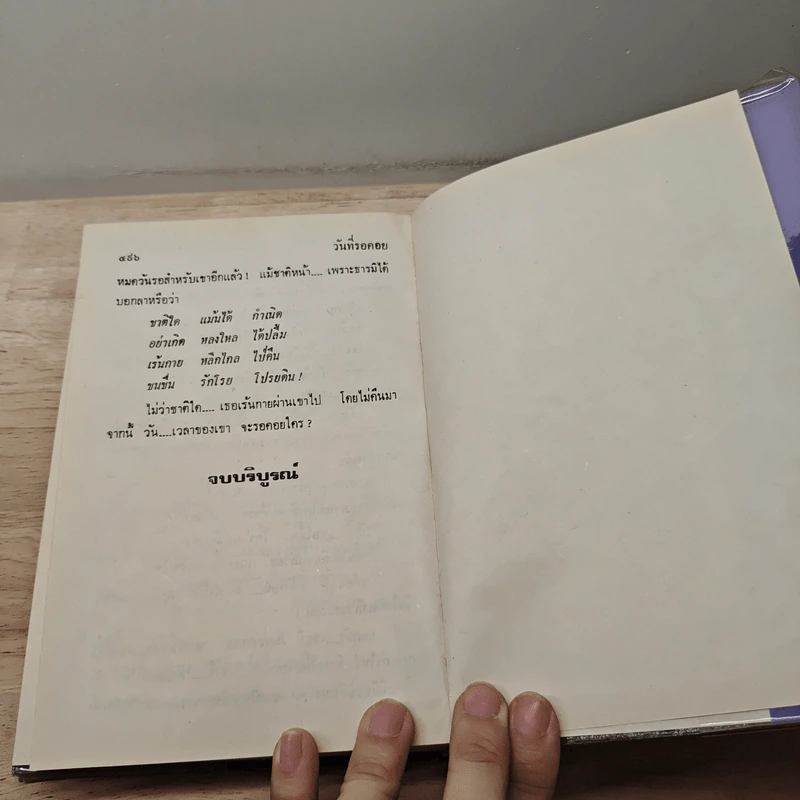 ๕๙๖ วันที่รอคอย
หมดวันรอสำหรับเขาอีกแล้ว! แม้ชาติหน้า.... เพราะธารมิได้
บอกลาหรือว่า
ชาติใด แม้นได้ กำเนิด
อย่าเกิด หลงใหล ได้ปลื้ม
เร้นกาย หลีกไกล ไป่คืน
ขมขื่น รักโรย โปรยดิน!
ไม่ว่าชาติใด.... เธอเร้นกายผ่านเขาไป โดยไม่คืนมา
จากนี้ วัน....เวลาของเขา จะรอคอยใคร?
จบบริบูรณ์